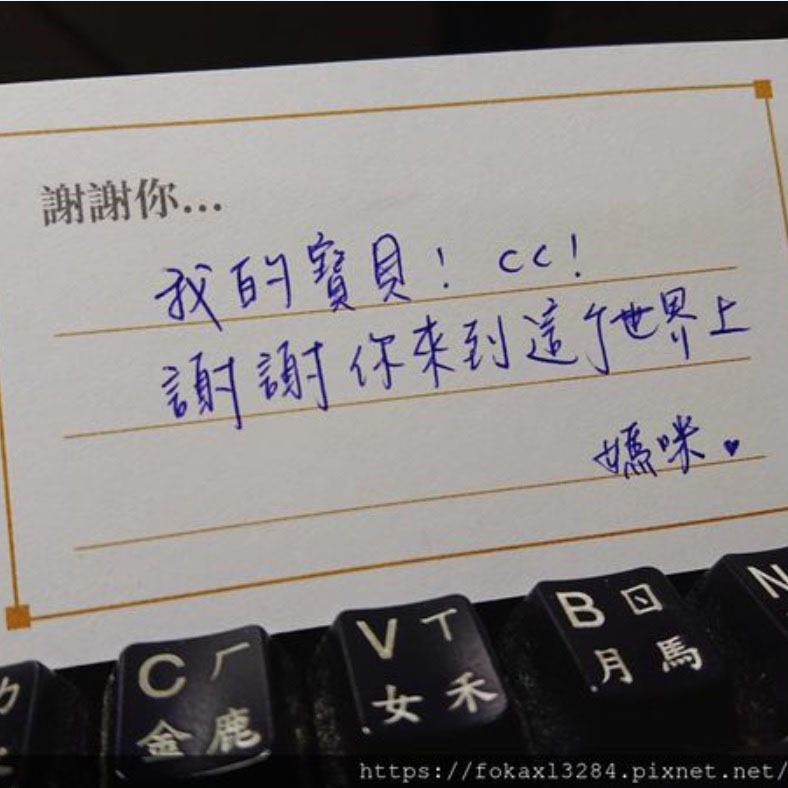 謝謝你...
我的寶貝! cc!
謝謝你來到這个世界上
媽咪.♥
C 金鹿
V 女禾
B 月馬
N
https://fokaxl3284.pixnet.net/